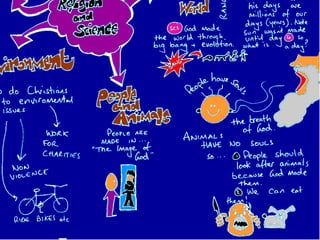 Religion
and
Science
World
his days are
millions of our
days (years). Note
sun wasn't made
until day 4 so
what is a day?
SCI God made
the world through
big bang + evolution.
People have Souls
the breath
of God.
ANIMALS
HAVE NO SOULS
so...
① People should
look after animals
because God made
them.
② We can eat
them!
do Christians
to enviromental
issues
WORK
FOR
CHARITIES
NON
VIOLENCE
RIDE BIKES etc
People
and
Animals
PEOPLE ARE
MADE IN...
"The Image of
God"